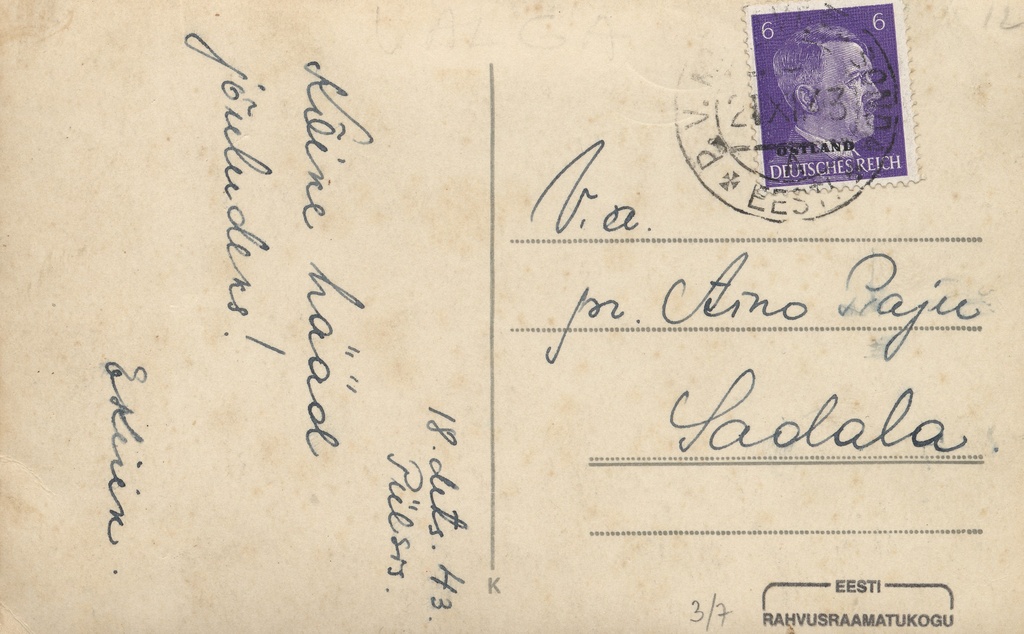 Kõike hääd
jõuludeks!
18. dets. 43.
V. a.
pr. Aino Paju
Sadala.
6 6
OSTLAND
DEUTSCHES REICH
EESTI
K
3/7
12
EESTI
RAHVUSRAAMATUKOGU